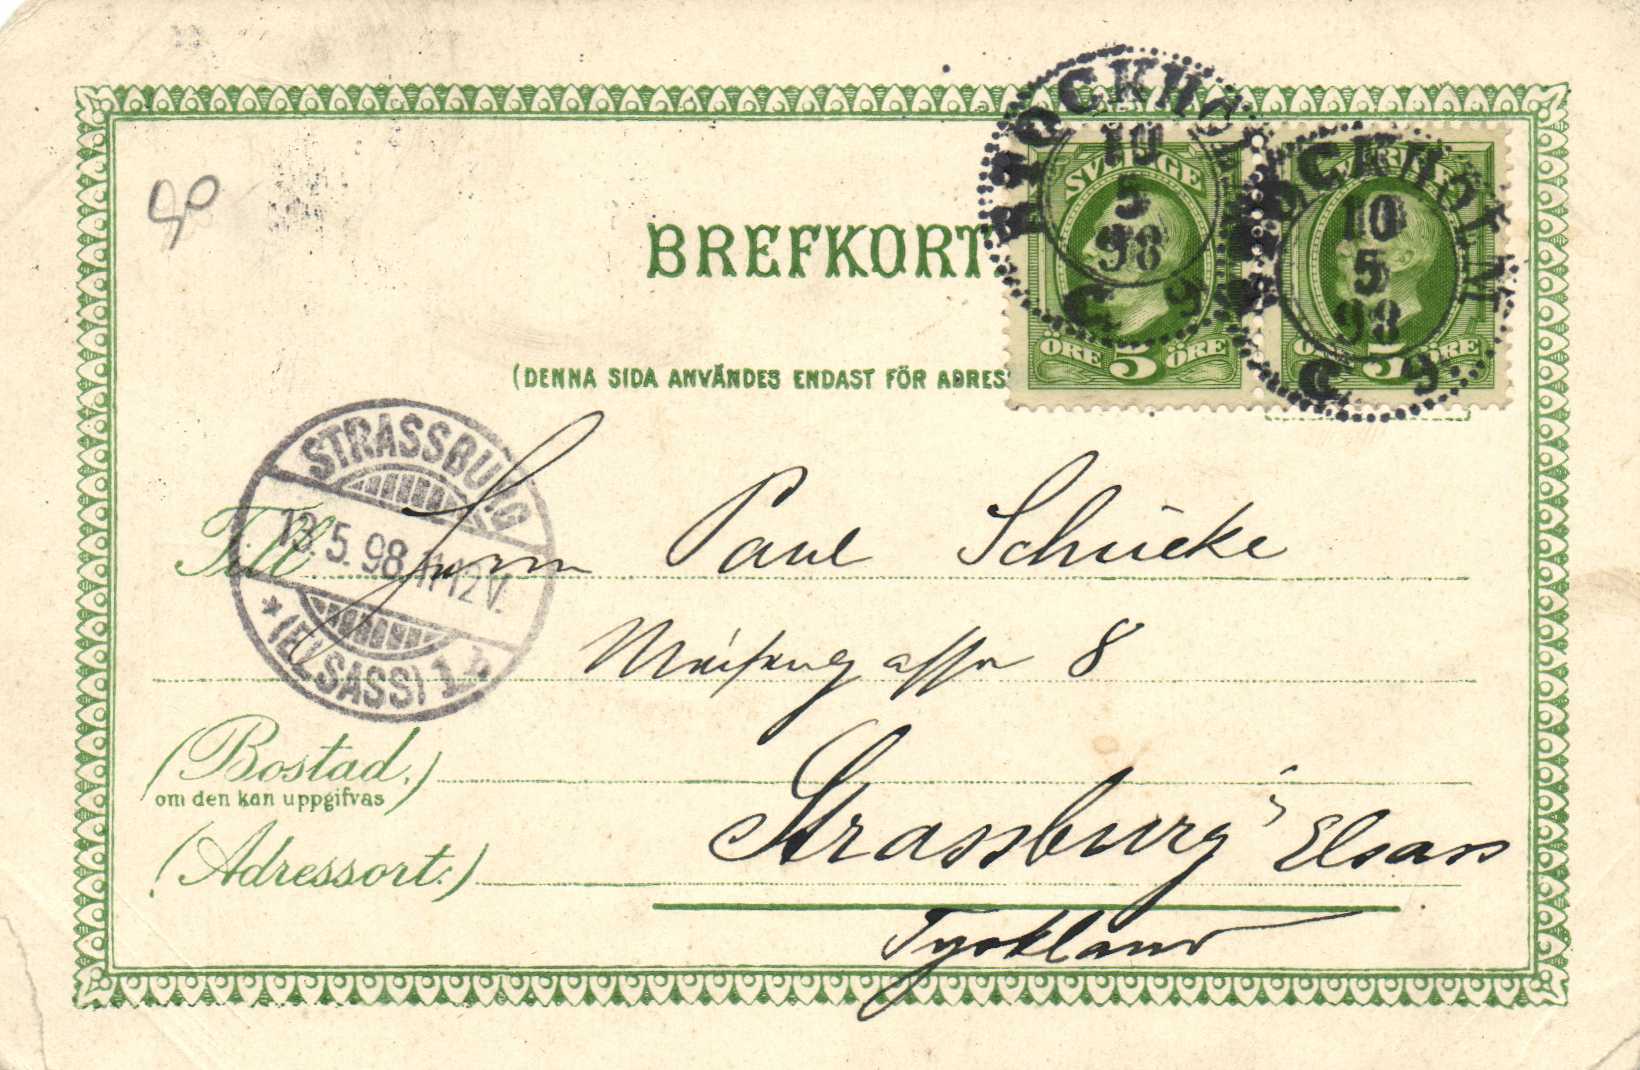 90
BREFKORT
(DENNA SIDA ANVÄNDES ENDAST FÖR ADRES
STOCKHOLM
10
5
98
C. 9
SVERIGE
ÖRE 5 ÖRE
STOCKHOLM
10
5
98
C. 9
SVERIGE
ÖRE 5 ÖRE
STRASSBURG
13.5.98.11-12V.
* (ELSASS) 1.
Till Herrn Paul Schücke
8
(Bostad.)
om den kan uppgifvas
Strassburg Elsass
(Adressort.)
Tyskland